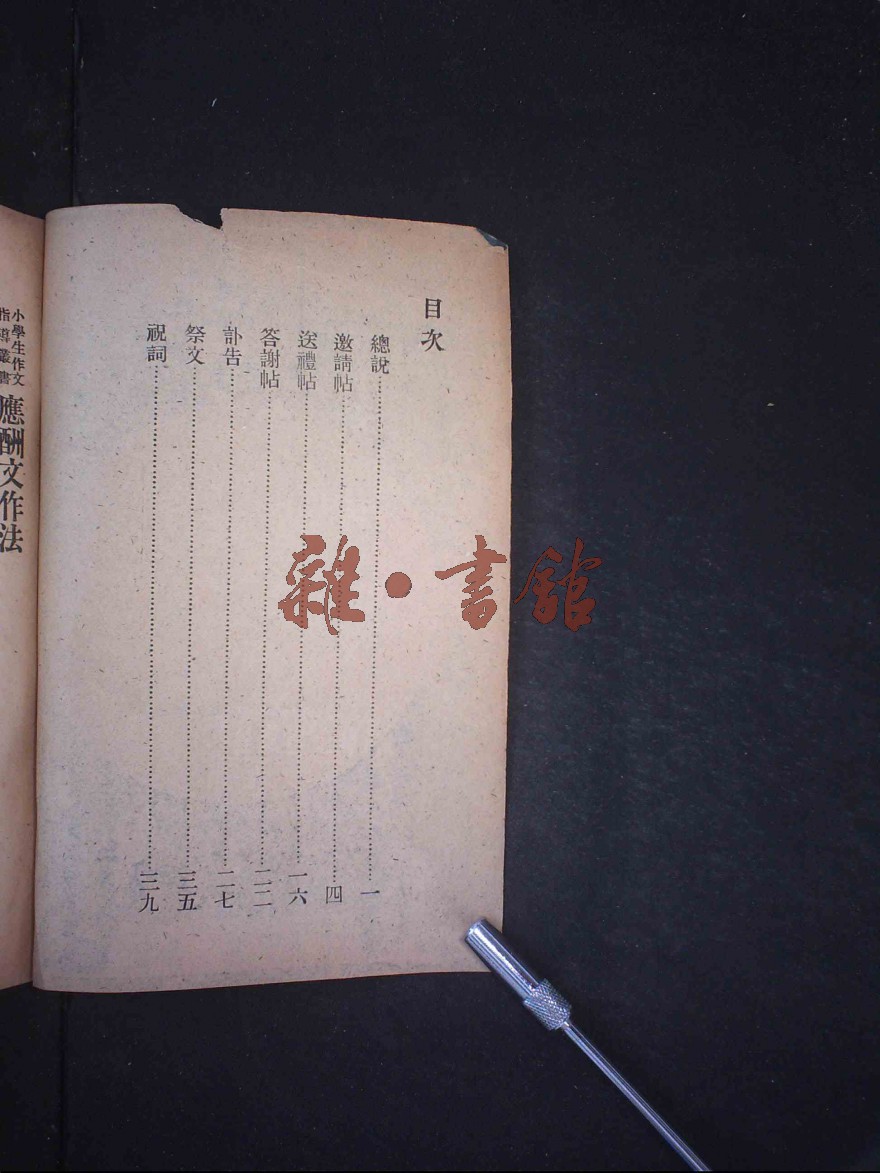 目次
總說……一
邀請帖……四
送禮帖……一六
答謝帖……二二
訃告……二七
祭文……三五
祝詞……三九
小學生作文
指導叢書
應酬文作法
雜·書館